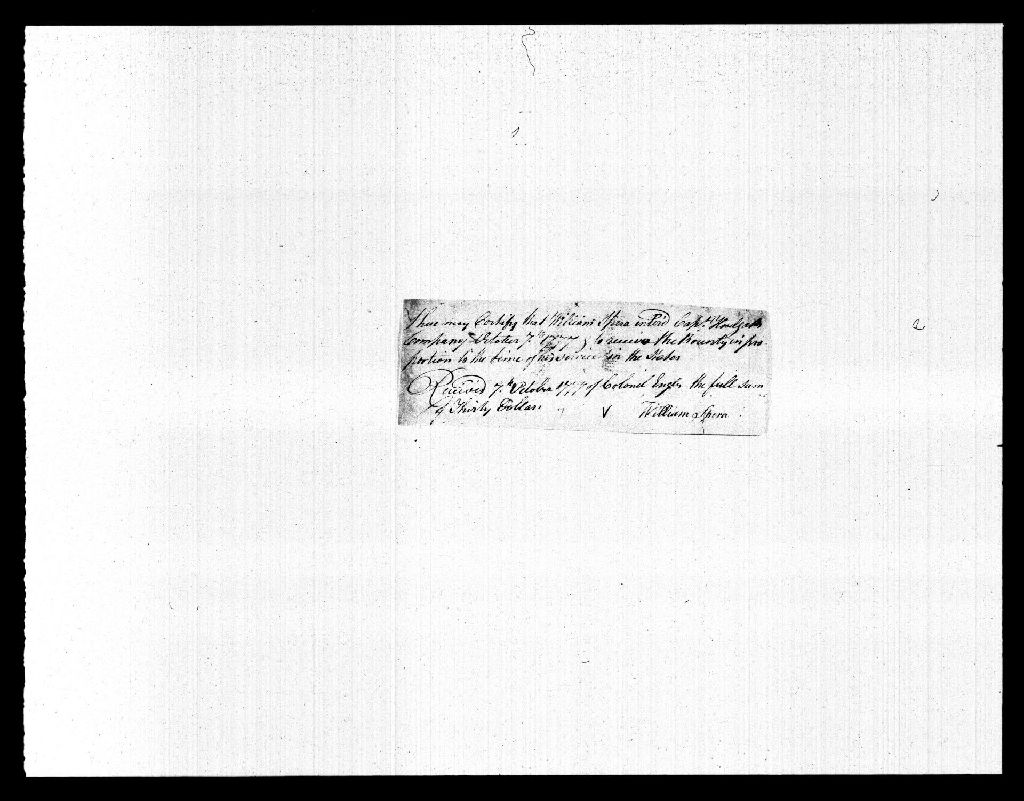 These may Certify that William Spera enterd Capt.
Company October 7th 1777 & to receive the Bounty in pro
portion to the time of his service in the
Received 7th October 1777 of Colonel Engle the full sum
of Thirty Dollars
William Spera
2